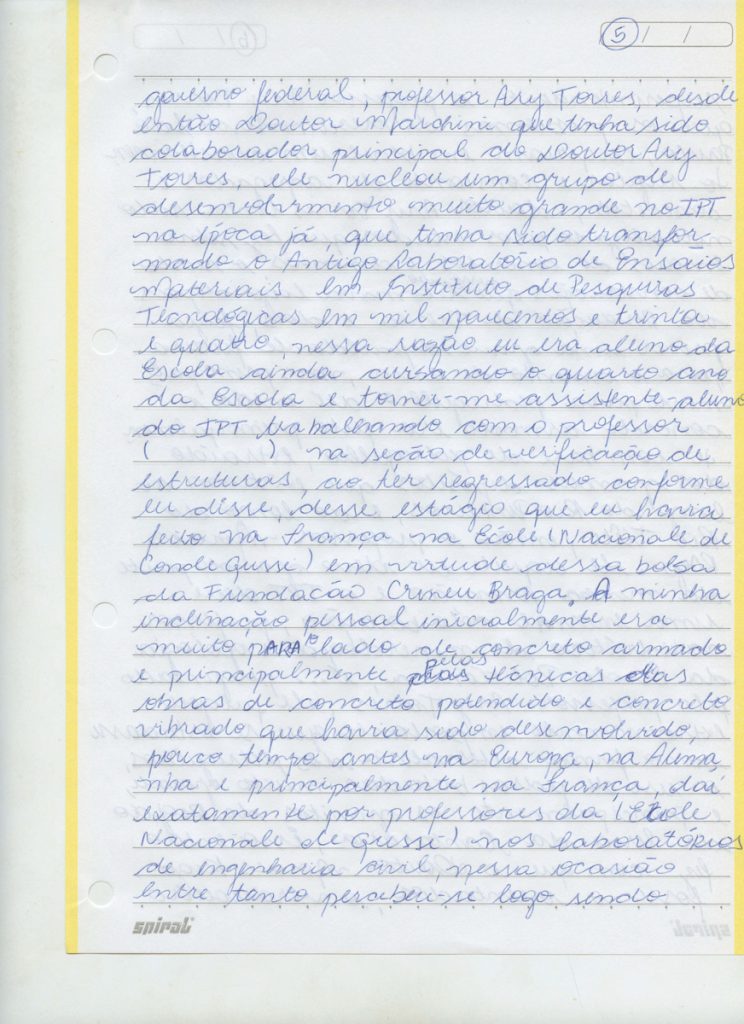 5 / /
governo federal, professor Ary Torres, desde
então Doutor Marchini que tinha sido
colaborador principal do Doutor Ary
Torres, ele nucleou um grupo de
desenvolvimento muito grande no IPT
na época já, que tinha sido transfor
mado o Antigo Laboratório de Ensaios
Materiais em Instituto de Pesquisas
Tecnológicas em mil novecentos e trinta
e quatro, nessa razão eu era aluno da
Escola ainda cursando o quarto ano
da Escola e tornei-me assistente-aluno
do IPT trabalhando com o professor
( ) na seção de verificação de
estruturas, ao ter regressado conforme
eu disse, desse estágio que eu havia
feito na França na École (Nacionale de
Conde Gusse) em virtude dessa bolsa
da Fundação Crineu Braga. A minha
inclinação pessoal inicialmente era
muito PARA o lado de concreto armado
e principalmente pelas técnicas das
obras de concreto potendido e concreto
vibrado que havia sido desenvolvido,
pouco tempo antes na Europa, na Alema
nha e principalmente na França, daí
exatamente por professores da (École
Nacionale de Gussé) nos laboratórios
de engenharia civil, nessa ocasião
entre tanto percebeu-se logo sendo
spiral